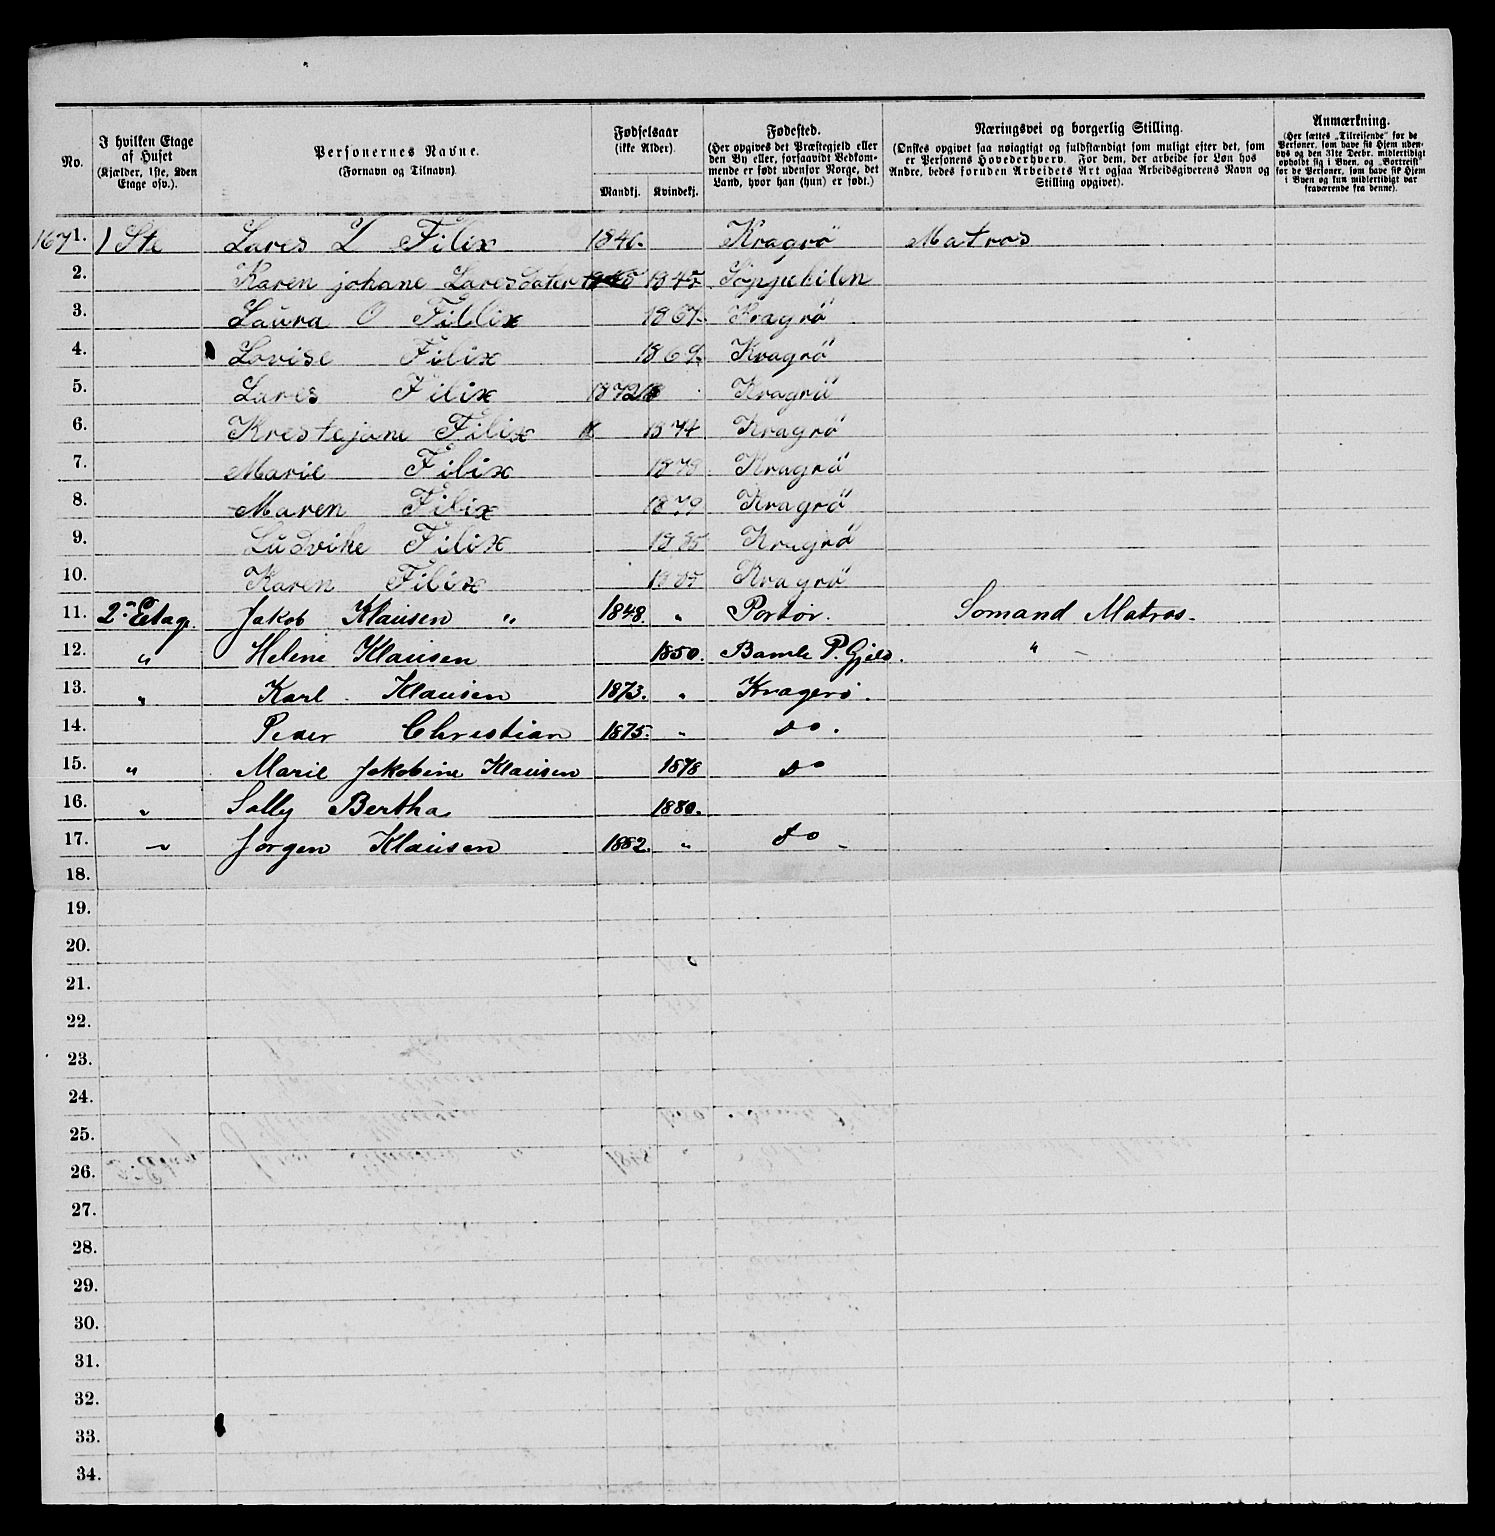 No.
I hvilken Etage af Huset (Kjælder, 1ste, 2den Etage osv.).
Personernes Navne. (Fornavn og Tilnavn)
Fødselsaar (ikke Alder).
Mandkj. Kvindekj.
Fødested. (Her opgives det Præstegjeld eller den By eller, forsaavidt Vedkommende er født udenfor Norge, det Land, hvor han (hun) er født.)
Næringsvei og borgerlig Stilling. (Ønskes opgivet saa nøiagtigt og fuldstændigt som muligt efter det, som er Personens Hovederhverv. For dem, der arbeide for Løn hos Andre, bedes foruden Arbeidets Art ogsaa Arbeidsgiverens Navn og Stilling opgivet).
Anmærkning. (Her sættes „Tilreisende“ for de Personer, som have sit Hjem udenbys og den 31te Decbr. midlertidigt opholdt sig i Byen, og „Bortreist“ for de Personer, som have sit Hjem i Byen og kun midlertidigt var fraværende fra denne).
167 1. 1 Ste Lares L Filix 1846. Kragrö Matros
2. Karen johane Laresdater 1845
3. Laura O Fillix 1867. Kragrö
4. Lovise Filix 1869. Kragrö
5. Lares Filix 1872 Kragrö
6. Krestejane Filix 1874 Kragrö
7. Marie Filix 1879 Kragrö
8. Maren Filix 1879 Kragrö
9. Ludvike Filix 1885 Kragrö
10. Karen Filix 1885 Kragrö
11. 2. Etag. Jakob Klausen " 1848. " Portør. Somand Matros.
12. " Helene Klausen 1850. Bamle P. Gjeld. " -
13. " Karl Klausen 1873. " Kragerø.
14. Peder Christian 1875. " do.
15. " Marie Jakobine Klausen 1878 do
16. " Sally Bertha 1880.
17. " Jørgen Klausen 1882. " do
18.
19.
20.
21.
22.
23.
24.
25.
26.
27.
28.
29.
30.
31.
32.
33.
34.